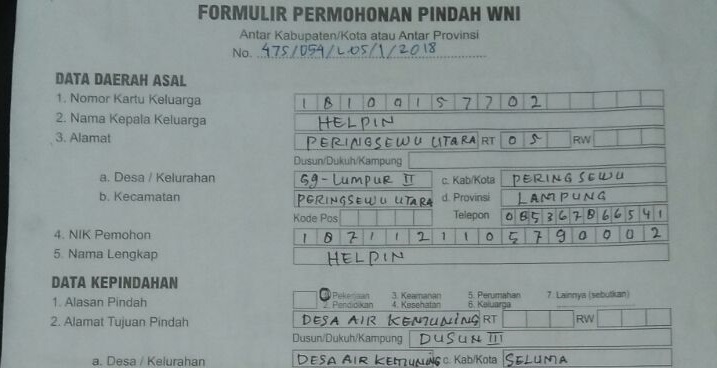 FORMULIR PERMOHONAN PINDAH WNI
Antar Kabupaten/Kota atau Antar Provinsi
No. 475/054/L05/1/2018
DATA DAERAH ASAL
1. Nomor Kartu Keluarga 18100157702
2. Nama Kepala Keluarga HELPIN
3. Alamat PERINGSEWU UTARA RT 05 RW
Dusun/Dukuh/Kampung
a. Desa / Kelurahan Gg-Lumpur II c. Kab/Kota PERINGSEWU
b. Kecamatan PERINGSEWU UTARA d. Provinsi LAMPUNG
Kode Pos Telepon 085367866541
4. NIK Pemohon 1871121105790002
5. Nama Lengkap HELPIN
DATA KEPINDAHAN
1. Alasan Pindah 1. Pekerjaan 3. Keamanan 5. Perumahan 7. Lainnya (sebutkan)
2. Pendidikan 4. Kesehatan 6. Keluarga
2. Alamat Tujuan Pindah DESA AIR KEMUNING RT RW
Dusun/Dukuh/Kampung DUSUN III
a. Desa / Kelurahan DESA AIR KEMUNING c. Kab/Kota SELUMA